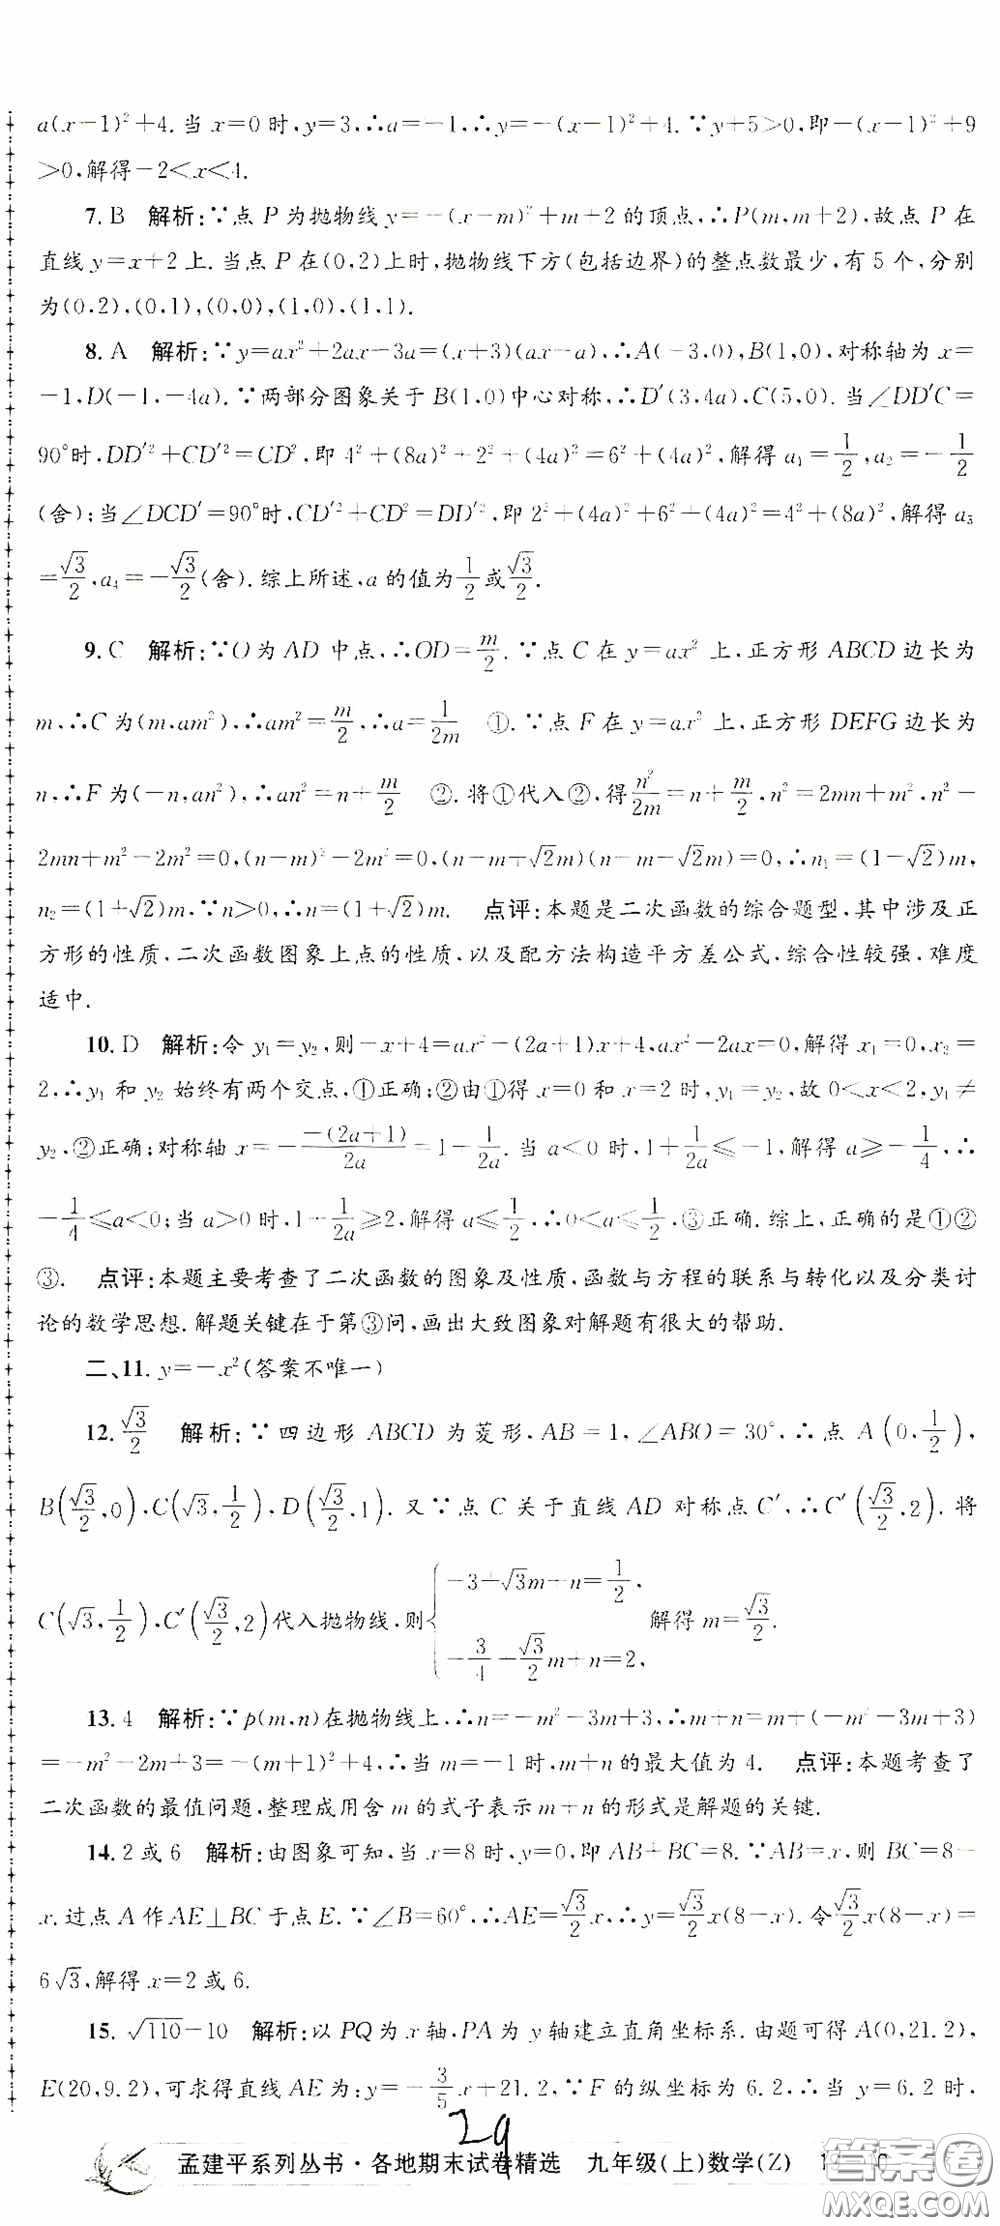 a(x-1)²+4. 当 x=0 时, y=3, ∴a=-1, ∴y=-(x-1)²+4. ∵y+5>0, 即-(x-1)²+9
>0, 解得-2<x<4.
7. B 解析:∵点 P 为抛物线 y=-(x-m)²+m+2 的顶点, ∴P(m, m+2), 故点 P 在
直线 y=x+2 上. 当点 P 在(0,2)上时, 抛物线下方(包括边界)的整点数最少, 有 5 个, 分别
为(0,2),(0,1),(0,0),(1,0),(1,1).
8. A 解析:∵y=ax²+2ax-3a=(x+3)(ax-a), ∴A(-3,0), B(1,0), 对称轴为 x=
-1, D(-1,-4a). ∵两部分图象关于 B(1,0)中心对称, ∴D′(3,4a), C(5,0). 当∠DD′C=
90°时, DD′²+CD′²=CD², 即 4²+(8a)²+2²+(4a)²=6²+(4a)², 解得 a₁=1/2, a₂=-1/2
(舍); 当∠DCD′=90°时, CD′²+CD²=DD′², 即 2²+(4a)²+6²+(4a)²=4²+(8a)², 解得 a₃
=√3/2, a₄=-√3/2(舍). 综上所述, a 的值为1/2或√3/2.
9. C 解析:∵O 为 AD 中点, ∴OD=m/2. ∵点 C 在 y=ax² 上, 正方形 ABCD 边长为
m, ∴C 为(m, am²), ∴am²=m/2, ∴a=1/2m ①. ∵点 F 在 y=ax² 上, 正方形 DEFG 边长为
n, ∴F 为(-n, an²), ∴an²=n+m/2 ②. 将①代入②, 得n²/2m=n+m/2, n²=2mn+m², n²-
2mn+m²-2m²=0, (n-m)²-2m²=0, (n-m+√2m)(n-m-√2m)=0, ∴n₁=(1-√2)m,
n₂=(1+√2)m, ∵n>0, ∴n=(1+√2)m. 点评:本题是二次函数的综合题型, 其中涉及正
方形的性质, 二次函数图象上点的性质, 以及配方法构造平方差公式, 综合性较强, 难度
适中.
10. D 解析:令 y₁=y₂, 则-x+4=ax²-(2a+1)x+4, ax²-2ax=0, 解得 x₁=0, x₂=
2, ∴y₁ 和 y₂ 始终有两个交点, ①正确; ②由①得 x=0 和 x=2 时, y₁=y₂, 故 0<x<2, y₁≠
y₂, ②正确; 对称轴 x=--(2a+1)/2a=1+1/2a. 当 a<0 时, 1+1/2a≤-1, 解得 a≥-1/4, ∴
-1/4≤a<0; 当 a>0 时, 1+1/2a≥2, 解得 a≤1/2, ∴0<a≤1/2, ③正确. 综上, 正确的是①②
③. 点评:本题主要考查了二次函数的图象及性质, 函数与方程的联系与转化以及分类讨
论的数学思想. 解题关键在于第③问, 画出大致图象对解题有很大的帮助.
二、11. y=-x²(答案不唯一)
12. √3/2 解析:∵四边形 ABCD 为菱形, AB=1, ∠ABO=30°, ∴点 A(0,1/2),
B(√3/2,0), C(√3,1/2), D(√3/2,1). 又∵点 C 关于直线 AD 对称点 C′, ∴C′(√3/2,2). 将
C(√3,1/2), C′(√3/2,2)代入抛物线, 则{-3+√3m+n=1/2, -3/4+√3/2m+n=2, 解得 m=√3/2.
13. 4 解析:∵p(m,n)在抛物线上, ∴n=-m²-3m+3, ∴m+n=m+(-m²-3m+3)
=-m²-2m+3=-(m+1)²+4, ∴当 m=-1 时, m+n 的最大值为 4. 点评:本题考查了
二次函数的最值问题, 整理成用含 m 的式子表示 m+n 的形式是解题的关键.
14. 2 或 6 解析:由图象可知, 当 x=8 时, y=0, 即 AB+BC=8. ∵AB=x, 则 BC=8-
x. 过点 A 作 AE⊥BC 于点 E. ∵∠B=60°, ∴AE=√3/2x, ∴y=√3/2x(8-x). 令√3/2x(8-x)=
6√3, 解得 x=2 或 6.
15. √110-10 解析:以 PQ 为 x 轴, PA 为 y 轴建立直角坐标系. 由题可得 A(0,21.2),
E(20,9.2), 可求得直线 AE 为:y=-3/5x+21.2, ∵F 的纵坐标为 6.2, ∴当 y=6.2 时,
29
孟建平系列丛书·各地期末试卷精选 九年级(上)数学(Z)
答案圈
MXQE.COM